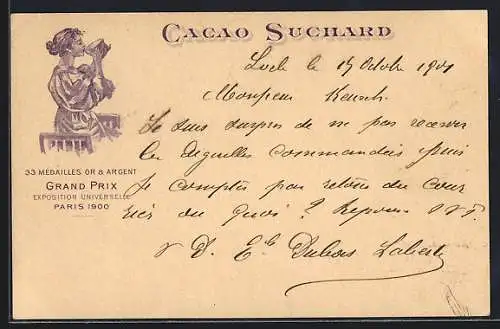 CACAO SUCHARD
33 MÉDAILLES OR & ARGENT
GRAND PRIX
EXPOSITION UNIVERSELLE
PARIS 1900
Locle le 15 Octobre 1901
Monsieur
Je suis surpris de ne pas recevoir
les aiguilles commandées puis
Je compter par retour du cour
rier ou quoi ? Repouse
Dubois